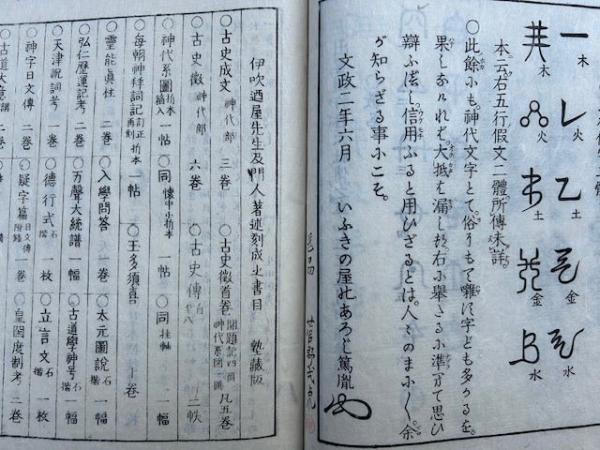 木
火
土
金
水
木
火
土
金
水
本云右五行假文二體所傳未詳。
○此餘にも。神代文字とて。俗にもて囃す字ども多かるを。
果しなければ大抵を漏しぬ右に擧ざるに準へて思ひ
辯ふべし。信用ふると用ひざるとは。人々のまに〱。余
が知らざる事にこそ。
文政二年六月 いふきの屋のあろじ篤胤
伊吹迺屋先生及門人著述刻成之書目 塾藏版
○古史成文 神代部 三巻 ○古史徴首巻 開題記四冊 神代系圖一 凡五巻
○古史徴 神代部 六巻 ○古史傳 二帙
○神代系圖 折本 摺入 一帖 ○同 懐中小折本 一帖 ○同 掛軸 一幅
○毎朝神拜詞記 訂正再刻 折本 一帖 ○玉多須喜 十巻
○靈能眞柱 二巻 ○入學問答 一巻 ○太元圖說 石摺 一幅
○弘仁歷運記考 二巻 ○五聲大統譜 一幅 ○古道學神号 石摺 一幅
○天津祝詞考 一巻 ○德行式 石摺 一枚 ○立言文 石摺 一枚
○神字日文傳 二巻 ○疑字篇 日文傳附錄 一巻 ○皇國度制考 二巻
○古道大意 二巻